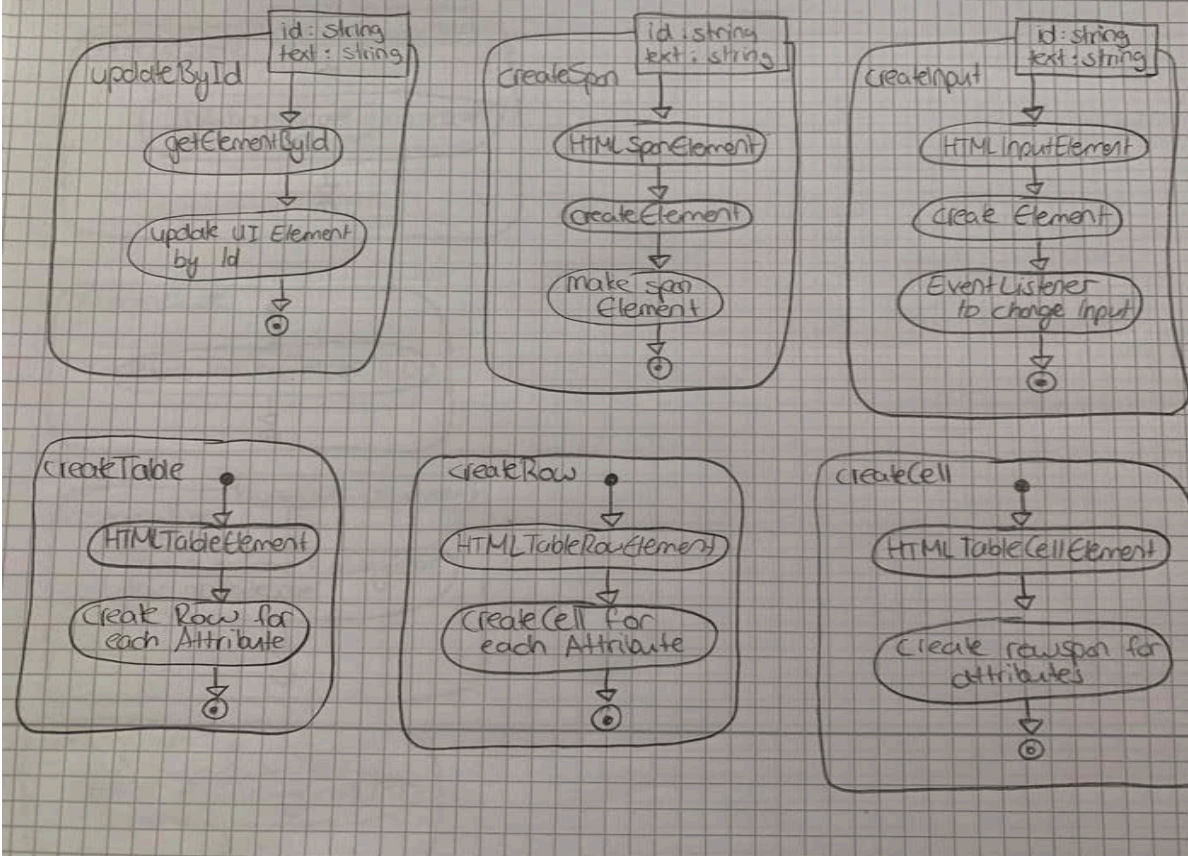 id: string
text: string
updateById
getElementById
update UI Element
by Id
id: string
text: string
createSpan
HTMLSpanElement
createElement
make span
Element
id: string
text: string
createInput
HTMLInputElement
create Element
EventListener
to change input
createTable
HTMLTableElement
Create Row for
each Attribute
createRow
HTMLTableRowElement
createCell for
each Attribute
createCell
HTMLTableCellElement
create rowspan for
attributes